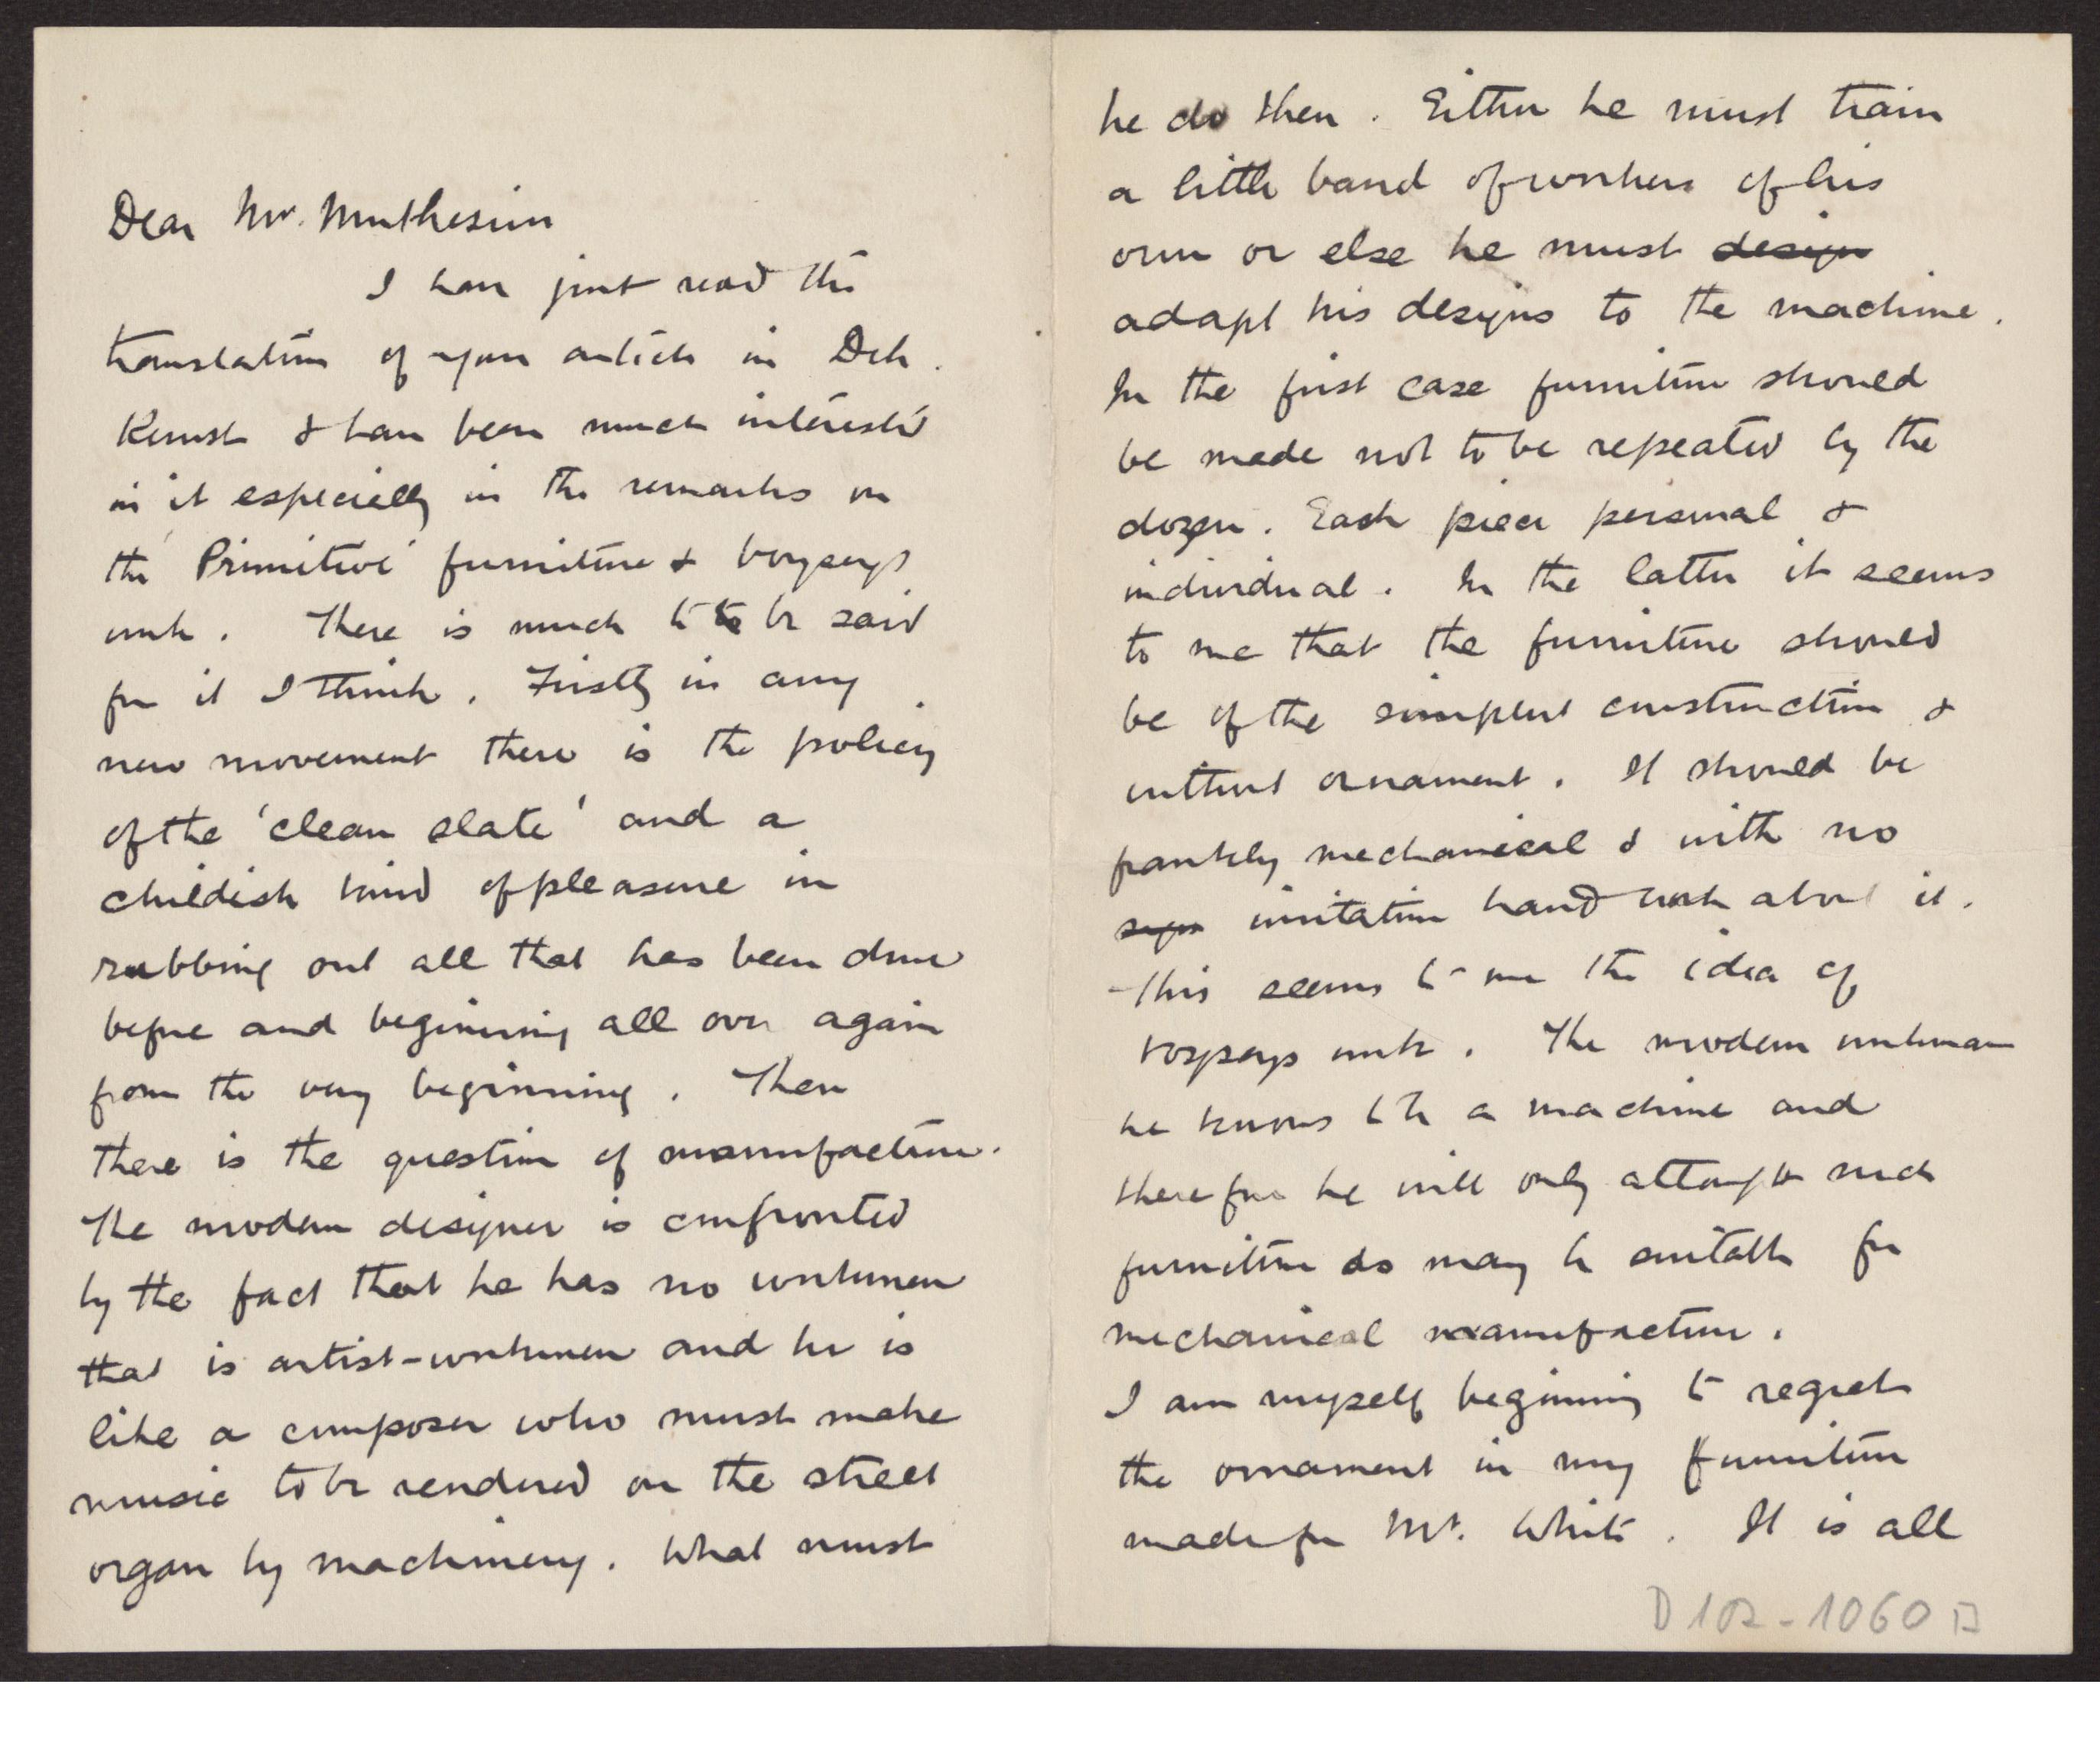 Dear Mr. Muthesius
I have just read the
translation of your article in Dek.
Kunst & have been much interested
in it especially in the remarks on
the 'Primitive' furniture & Voyseys
work. There is much to to be said
for it I think. Firstly in any
new movement there is the policy
of the 'clean slate' and a
childish kind of pleasure in
rubbing out all that has been done
before and beginning all over again
from the very beginning. Then
there is the question of manufacture.
The modern designer is confronted
by the fact that he has no workmen
that is artist-workmen and he is
like a composer who must make
music to be rendered on the street
organ by machinery. What must
he do then. Either he must train
a little band of workers of his
own or else he must design
adapt his designs to the machine.
In the first case furniture should
be made not to be repeated by the
dozen. Each piece personal &
individual. In the latter it seems
to me that the furniture should
be of the simplest construction &
without ornament. It should be
frankly mechanical & with no
sign imitation hand work about it.
This seems to me the idea of
Voyseys work. The modern workman
he knows to be a machine and
therefore he will only attempt such
furniture as may be suitable for
mechanical manufacture.
I am myself beginning to regret
the ornament in my furniture
made for Mr. White. It is all
D 102-1060